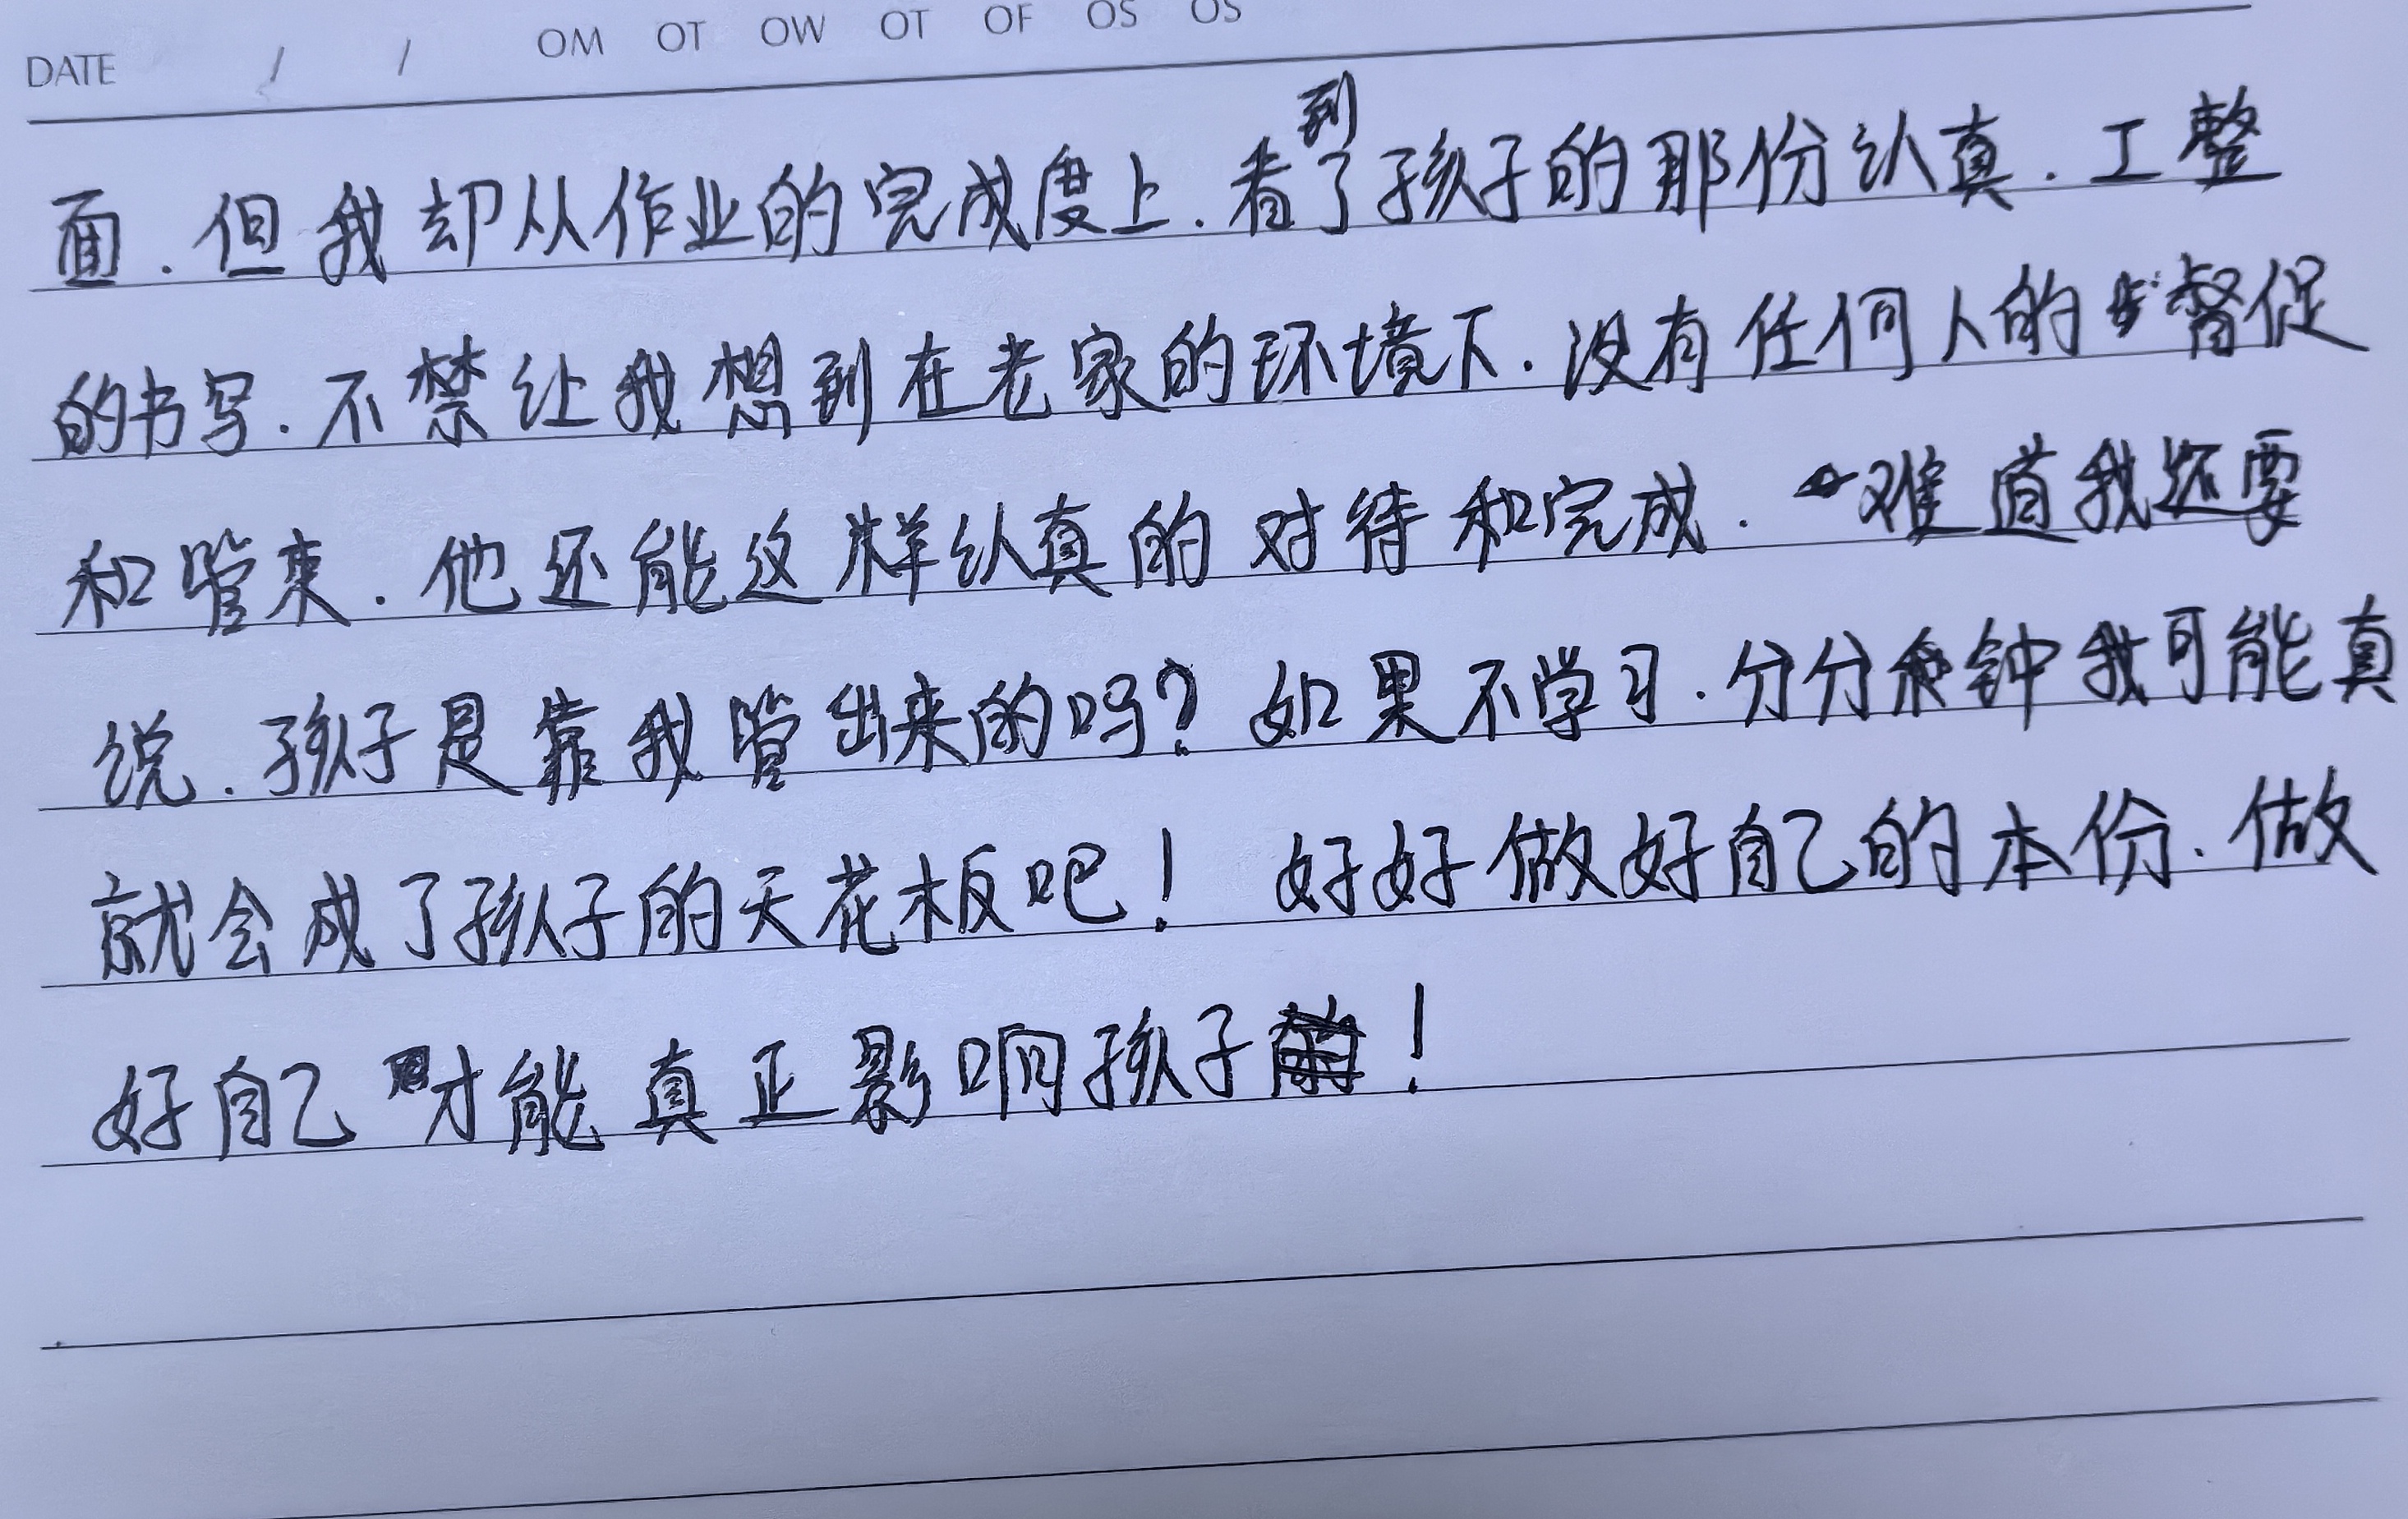 DATE / / OM OT OW OT OF OS OS
面.但我却从作业的完成度上.看到了孩子的那份认真.工整
的书写.不禁让我想到在老家的环境下.没有任何人的督促
和管束.他还能这样认真的对待和完成.难道我还要
说.孩子是靠我管出来的吗?如果不学习.分分秒钟我可能真
就会成了孩子的天花板吧!好好做好自己的本份.做
好自己才能真正影响孩子!